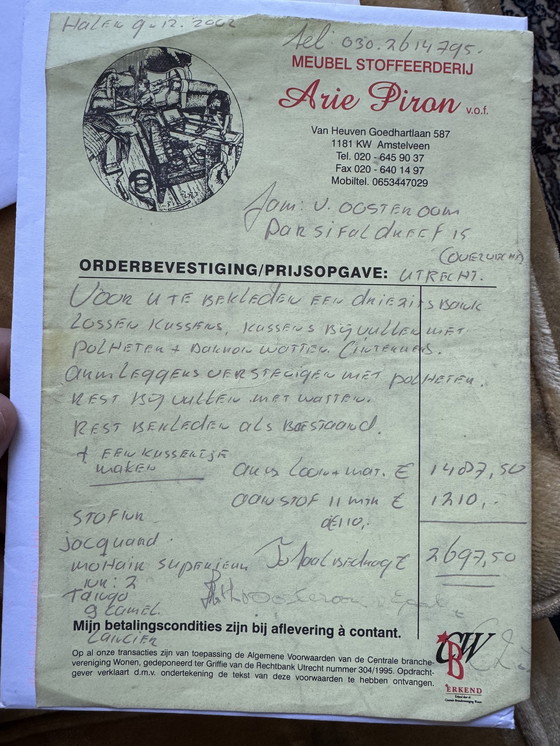 Halen 9-12. 2002
tel: 030.2614795.
MEUBEL STOFFEERDERIJ
Arie Piron v.o.f.
Van Heuven Goedhartlaan 587
1181 KW Amstelveen
Tel. 020 - 645 90 37
Fax 020 - 640 14 97
Mobiltel. 0653447029
Fam: V. OOSTEROOM
PARSIFALDREEF 15
(OVERVECHT)
ORDERBEVESTIGING/PRIJSOPGAVE: UTRECHT.
VOOR U TE BEKLEDEN EEN driezits BANK
LOSSEN KUSSENS, KUSSENS BIJVULLEN MET
POLHETER + DAKRON WATTEN
ARMLEGGERS VERSTEVIGEN MET POLHETER.
REST BIJVULLEN MET WATTEN.
REST BEKLEDEN ALS BESTAAND.
+ EEN KUSSENTJE
MAKEN
aan loon + mat. € 1487,50
aan STOF 11 mtr € 1210,-
à €110,-
STOFNR
Jacquard
MOHAIR SUPERIEUR Totaal bedrag € 2697,50
NR: 2
TANGO
9 CAMEL.
Mijn betalingscondities zijn bij aflevering à contant.
Op al onze transacties zijn van toepassing de Algemene Voorwaarden van de Centrale branche-
vereniging Wonen, gedeponeerd ter Griffie van de Rechtbank Utrecht nummer 304/1995. Opdracht-
gever verklaart d.m.v. ondertekening de tekst van deze voorwaarden te hebben ontvangen.
CBW
ERKEND